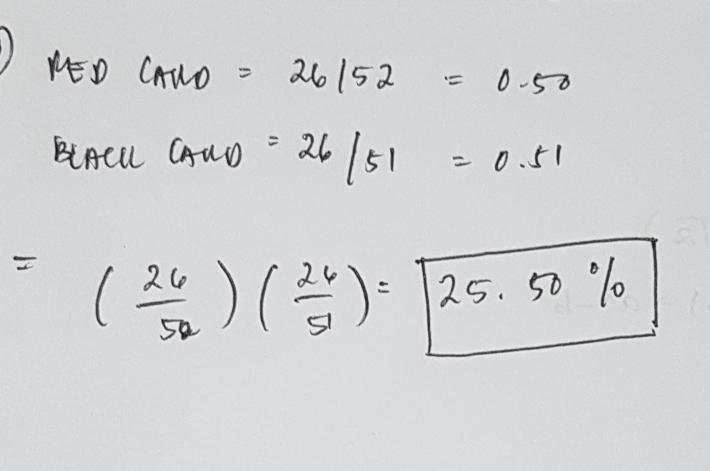 RED CARD = 26/52 = 0.50
BLACK CARD = 26/51 = 0.51
= (26/52)(26/51) = 25.50 %